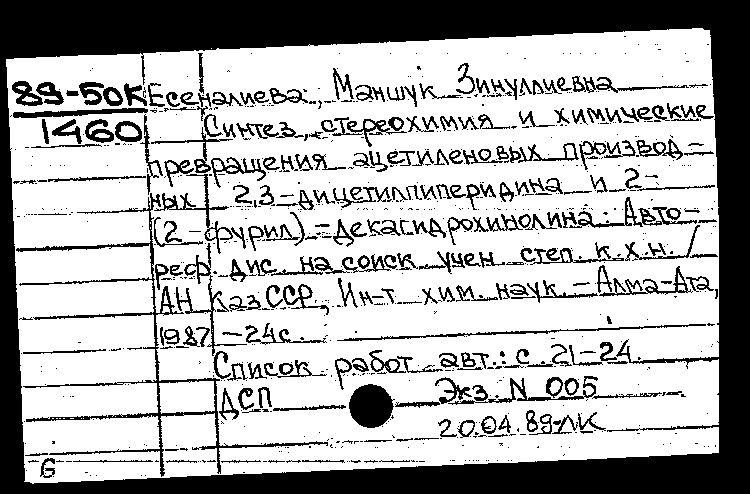 89-50К Есеналиева, Маншук Зинуллиевна
1460 Синтез, стереохимия и химические
превращения ацетиленовых производ-
ных 2,3-дицетилпиперидина и 2-
(2-фурил)-декагидрохинолина: Авто-
реф. дис. на соиск. учен. степ. к.х.н. /
АН КазССР, Ин-т хим. наук. - Алма-Ата,
1987 - 24с.
Список работ авт.: с. 21-24.
ДСП Экз. N 005
20.04.89-ЛК
6